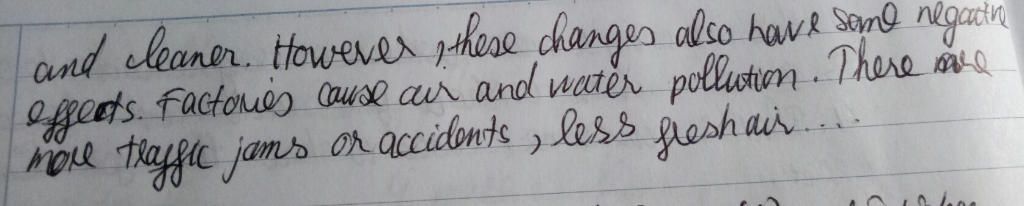 and cleaner. However, these changes also have some negative
effects. Factories cause air and water pollution. There are
more traffic jams or accidents, less fresh air....